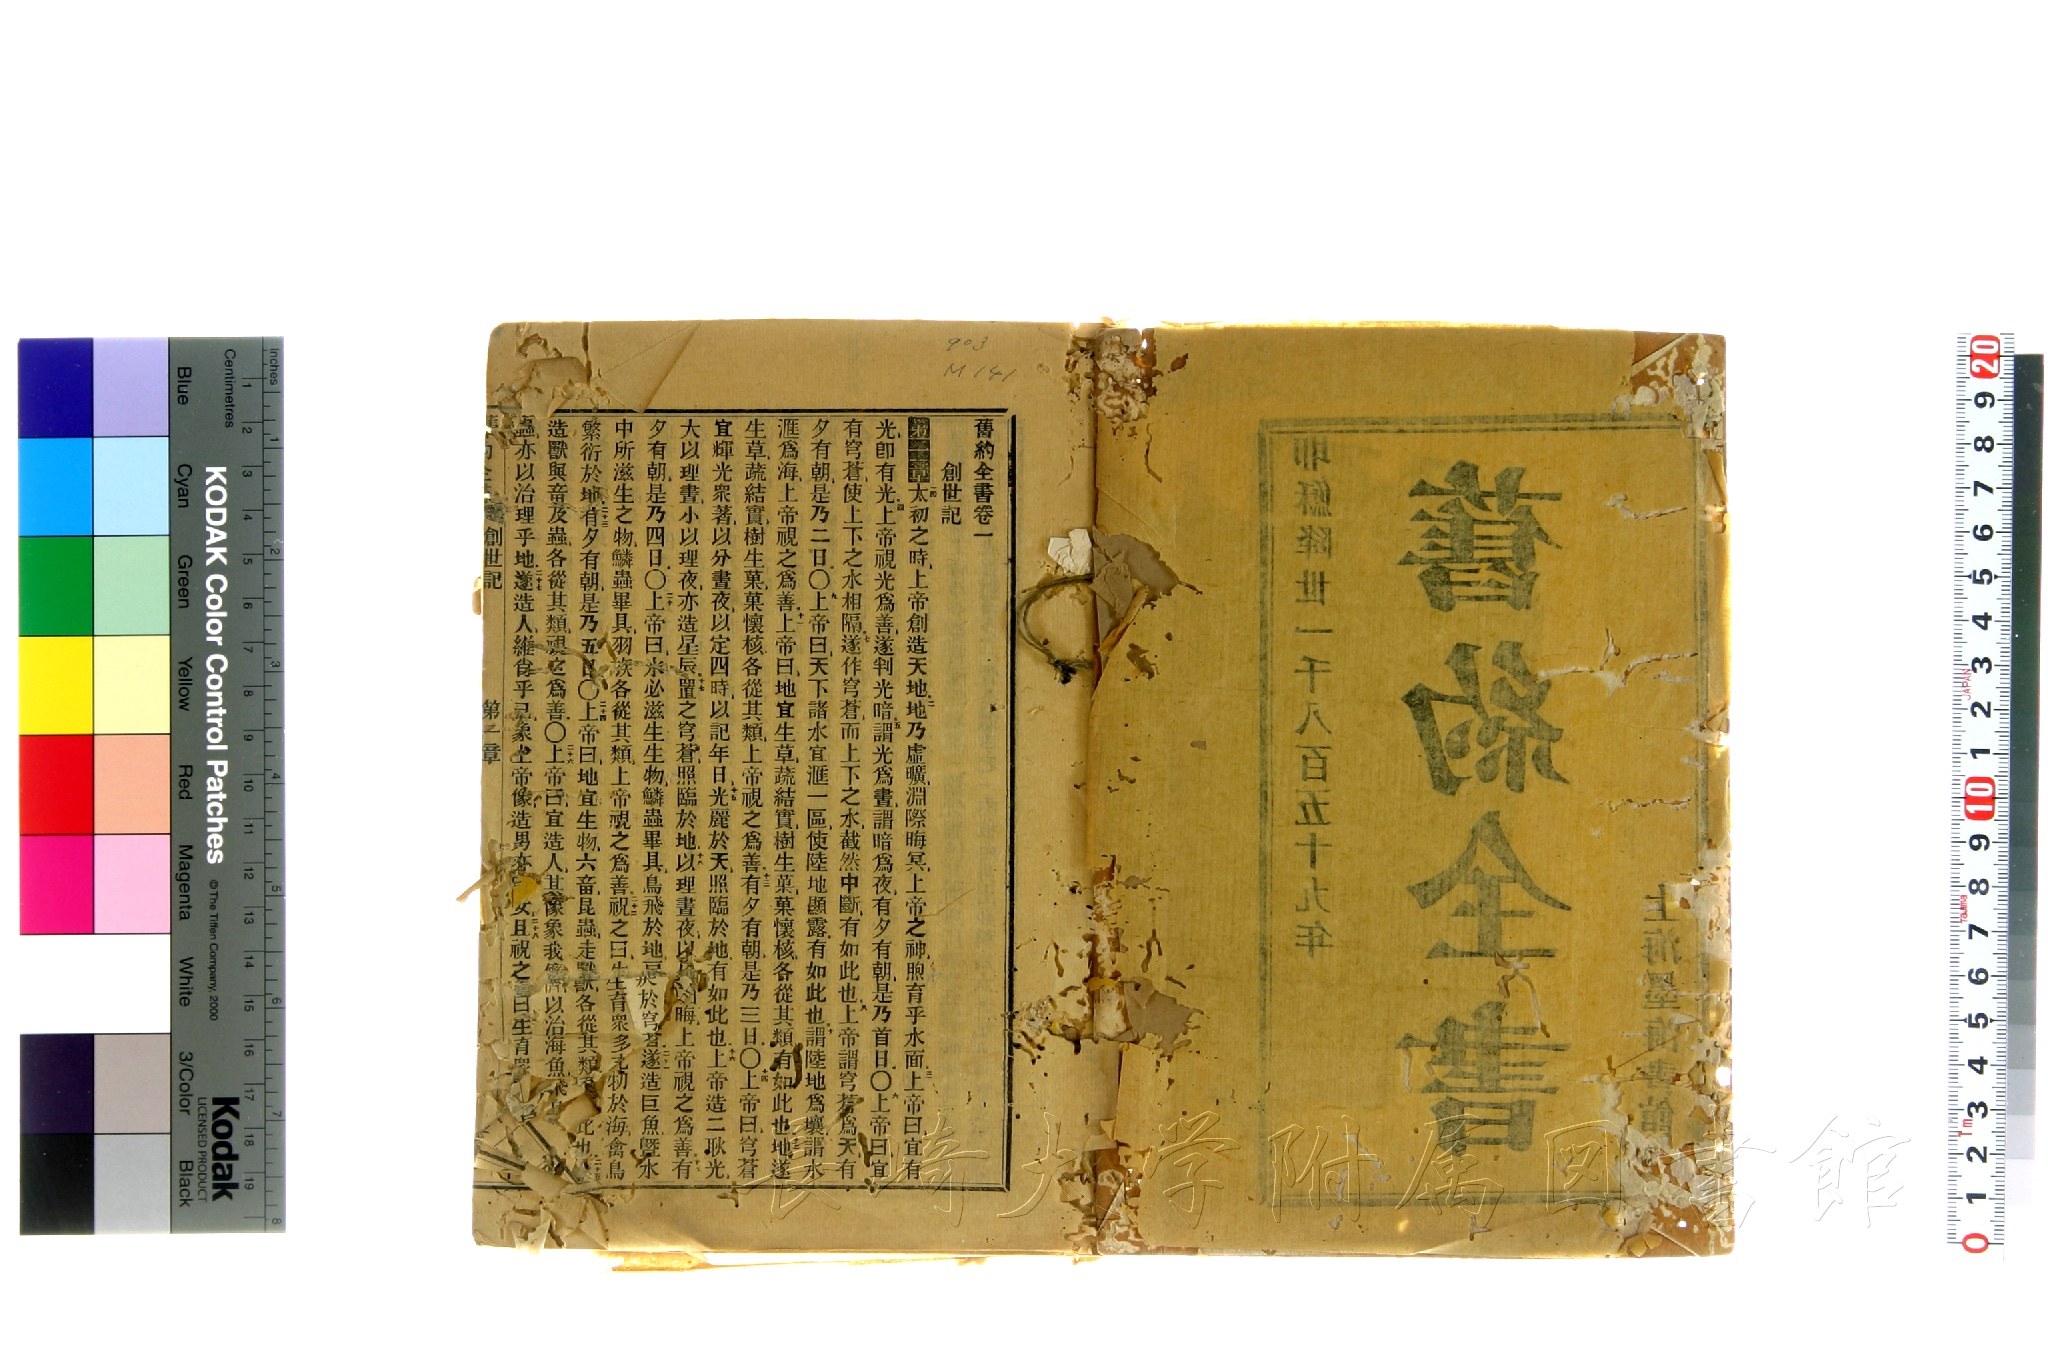 耶穌降世一千八百五十九年
舊約全書
上海墨海書館
903
M 141
舊約全書卷一
創世記
第一章太初之時上帝創造天地地乃虛曠淵際晦冥上帝之神煦育乎水面上帝曰宜有
光卽有光上帝視光爲善遂判光暗謂光爲晝謂暗爲夜有夕有朝是乃首日〇上帝曰宜
有穹蒼使上下之水相隔遂作穹蒼而上下之水截然中斷有如此也上帝謂穹蒼爲天有
夕有朝是乃二日〇上帝曰天下諸水宜滙一區使陸地顯露有如此也謂陸地爲壤謂水
滙爲海上帝視之爲善上帝曰地宜生草蔬結實樹生菓菓懷核各從其類有如此也地遂
生草蔬結實樹生菓菓懷核各從其類上帝視之爲善有夕有朝是乃三日〇上帝曰穹蒼
宜輝光衆著以分晝夜以定四時以記年日光麗於天照臨於地有如此也上帝造二耿光
大以理晝小以理夜亦造星辰置之穹蒼照臨於地以理晝夜以晦上帝視之爲善有
夕有朝是乃四日〇上帝曰水必滋生生物鱗蟲畢具鳥飛於地戾於穹蒼遂造巨魚曁水
中所滋生之物鱗蟲畢具羽族各從其類上帝視之爲善祝之曰生育衆多充牣於海禽鳥
繁衍於地有夕有朝是乃五日〇上帝曰地宜生物六畜昆蟲走獸各從其類此也
造獸與畜及蟲各從其類視之爲善〇上帝曰宜造人其像象我儕以治海魚飛
蟲亦以治理乎地遂造人維肖乎己象上帝像造男亦女且祝之曰生育衆
創世記
第一章
KODAK Color Control Patches
© The Tiffen Company, 2000
Kodak
LICENSED PRODUCT
Inches
Centimetres
Blue
Cyan
Green
Yellow
Red
Magenta
White
3/Color
Black
1 2 3 4 5 6 7 8
1 2 3 4 5 6 7 8 9 10 11 12 13 14 15 16 17 18 19
20 9 8 7 6 5 4 3 2 1 10 9 8 7 6 5 4 3 2 1 0
JAPAN
Tajima
1m
長崎大学附属図書館